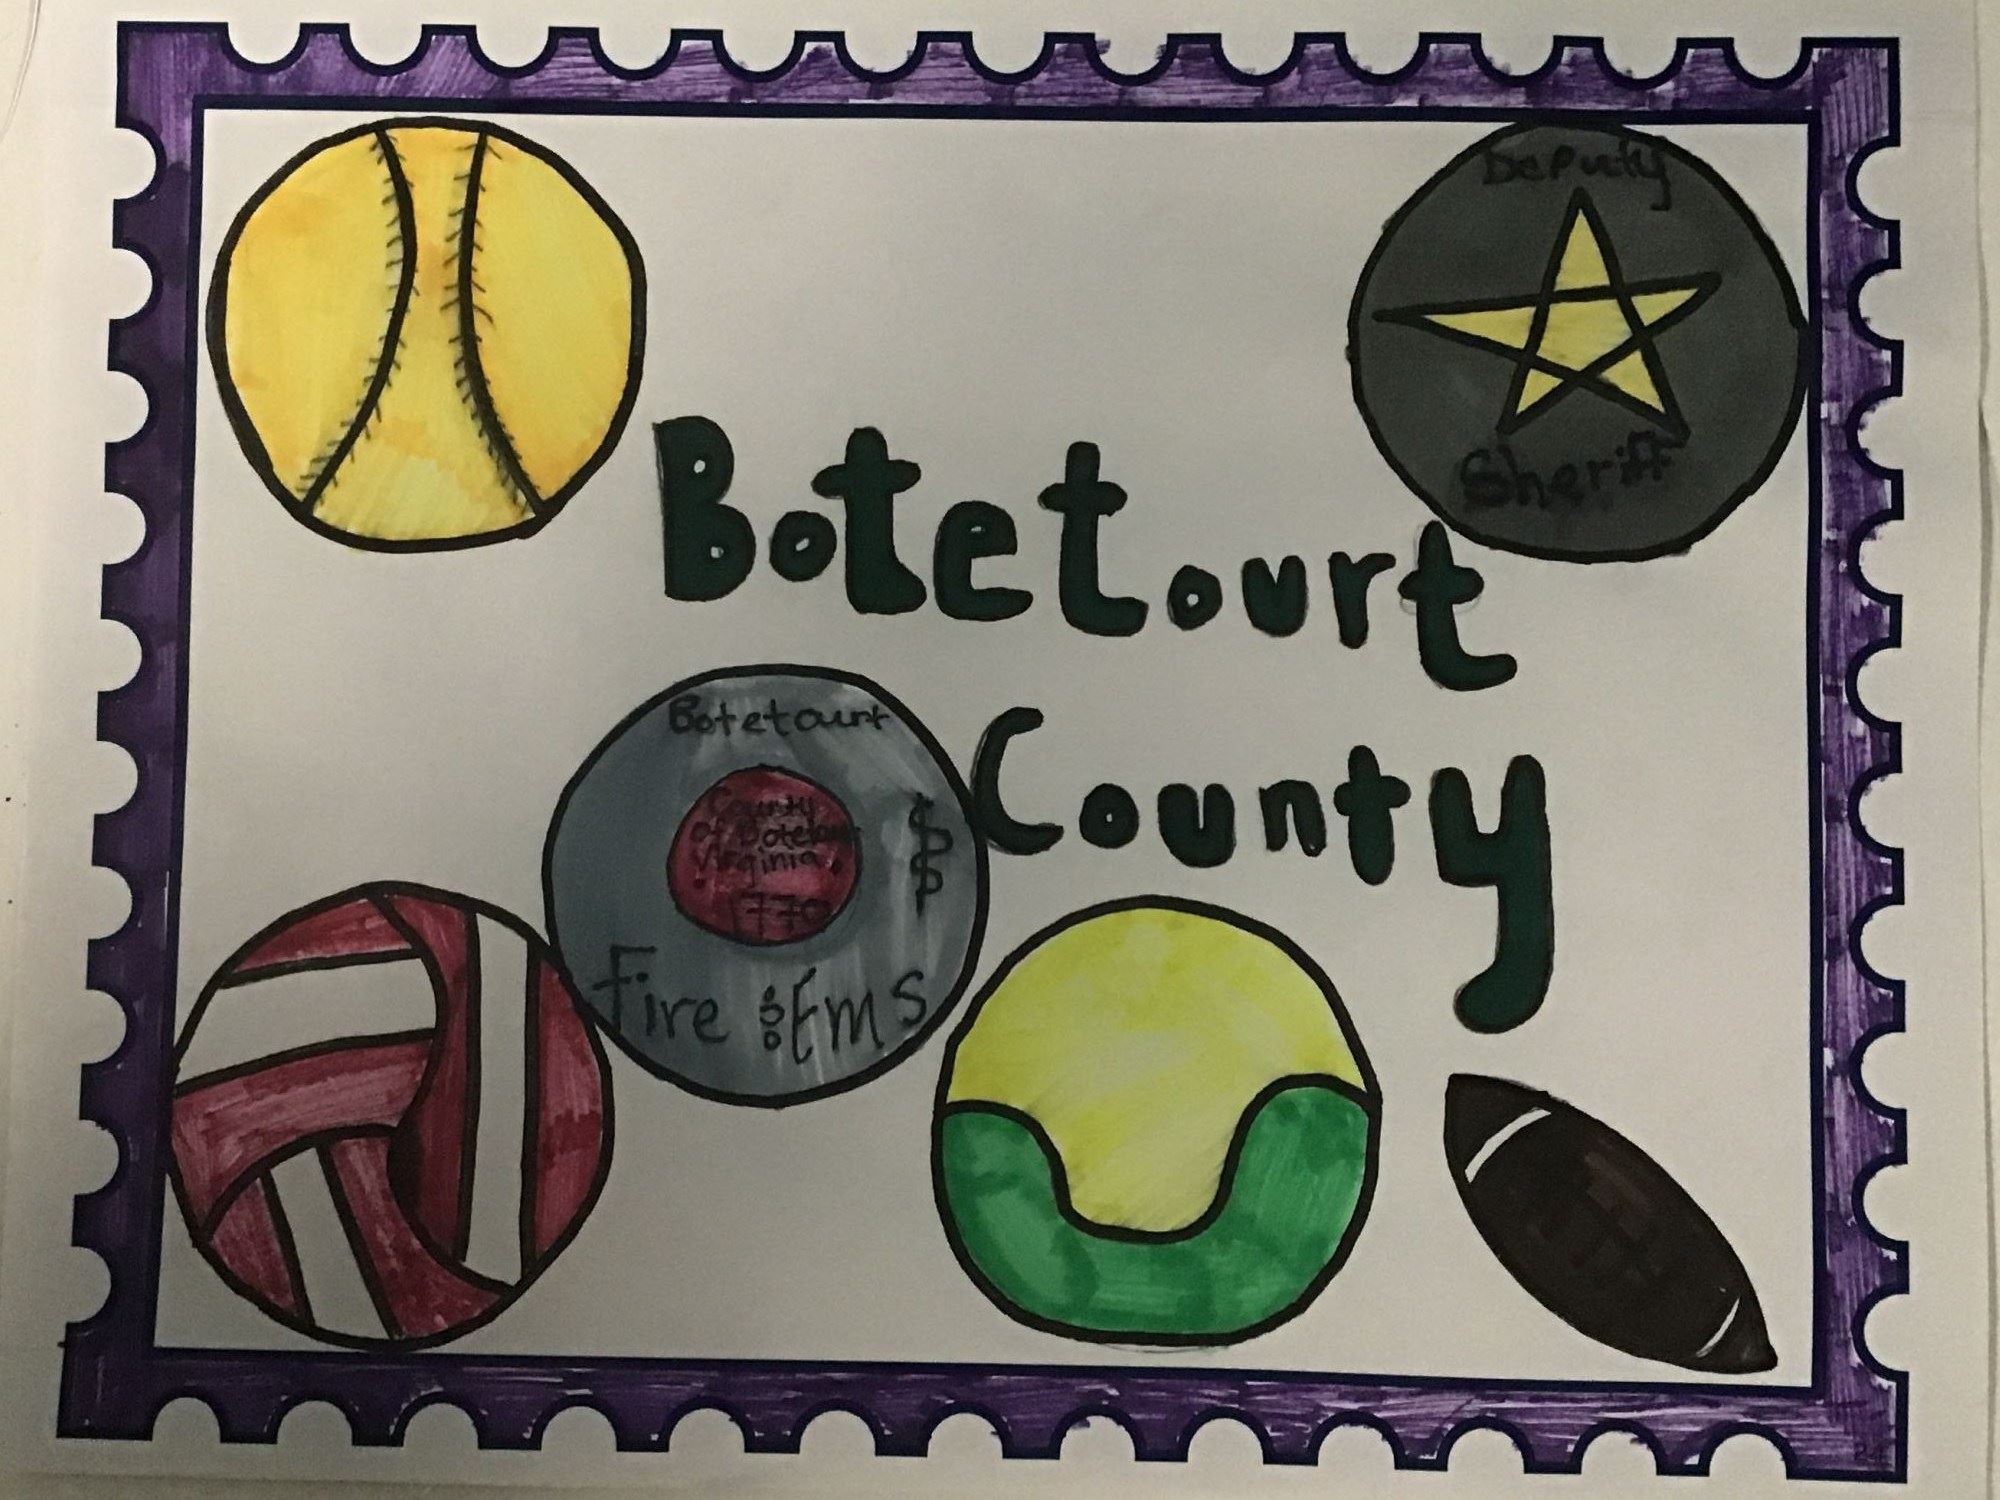 Deputy
Sheriff
Botetourt
County
Botetourt
County
of Botetour
Virginia
1770
Fire & Ems